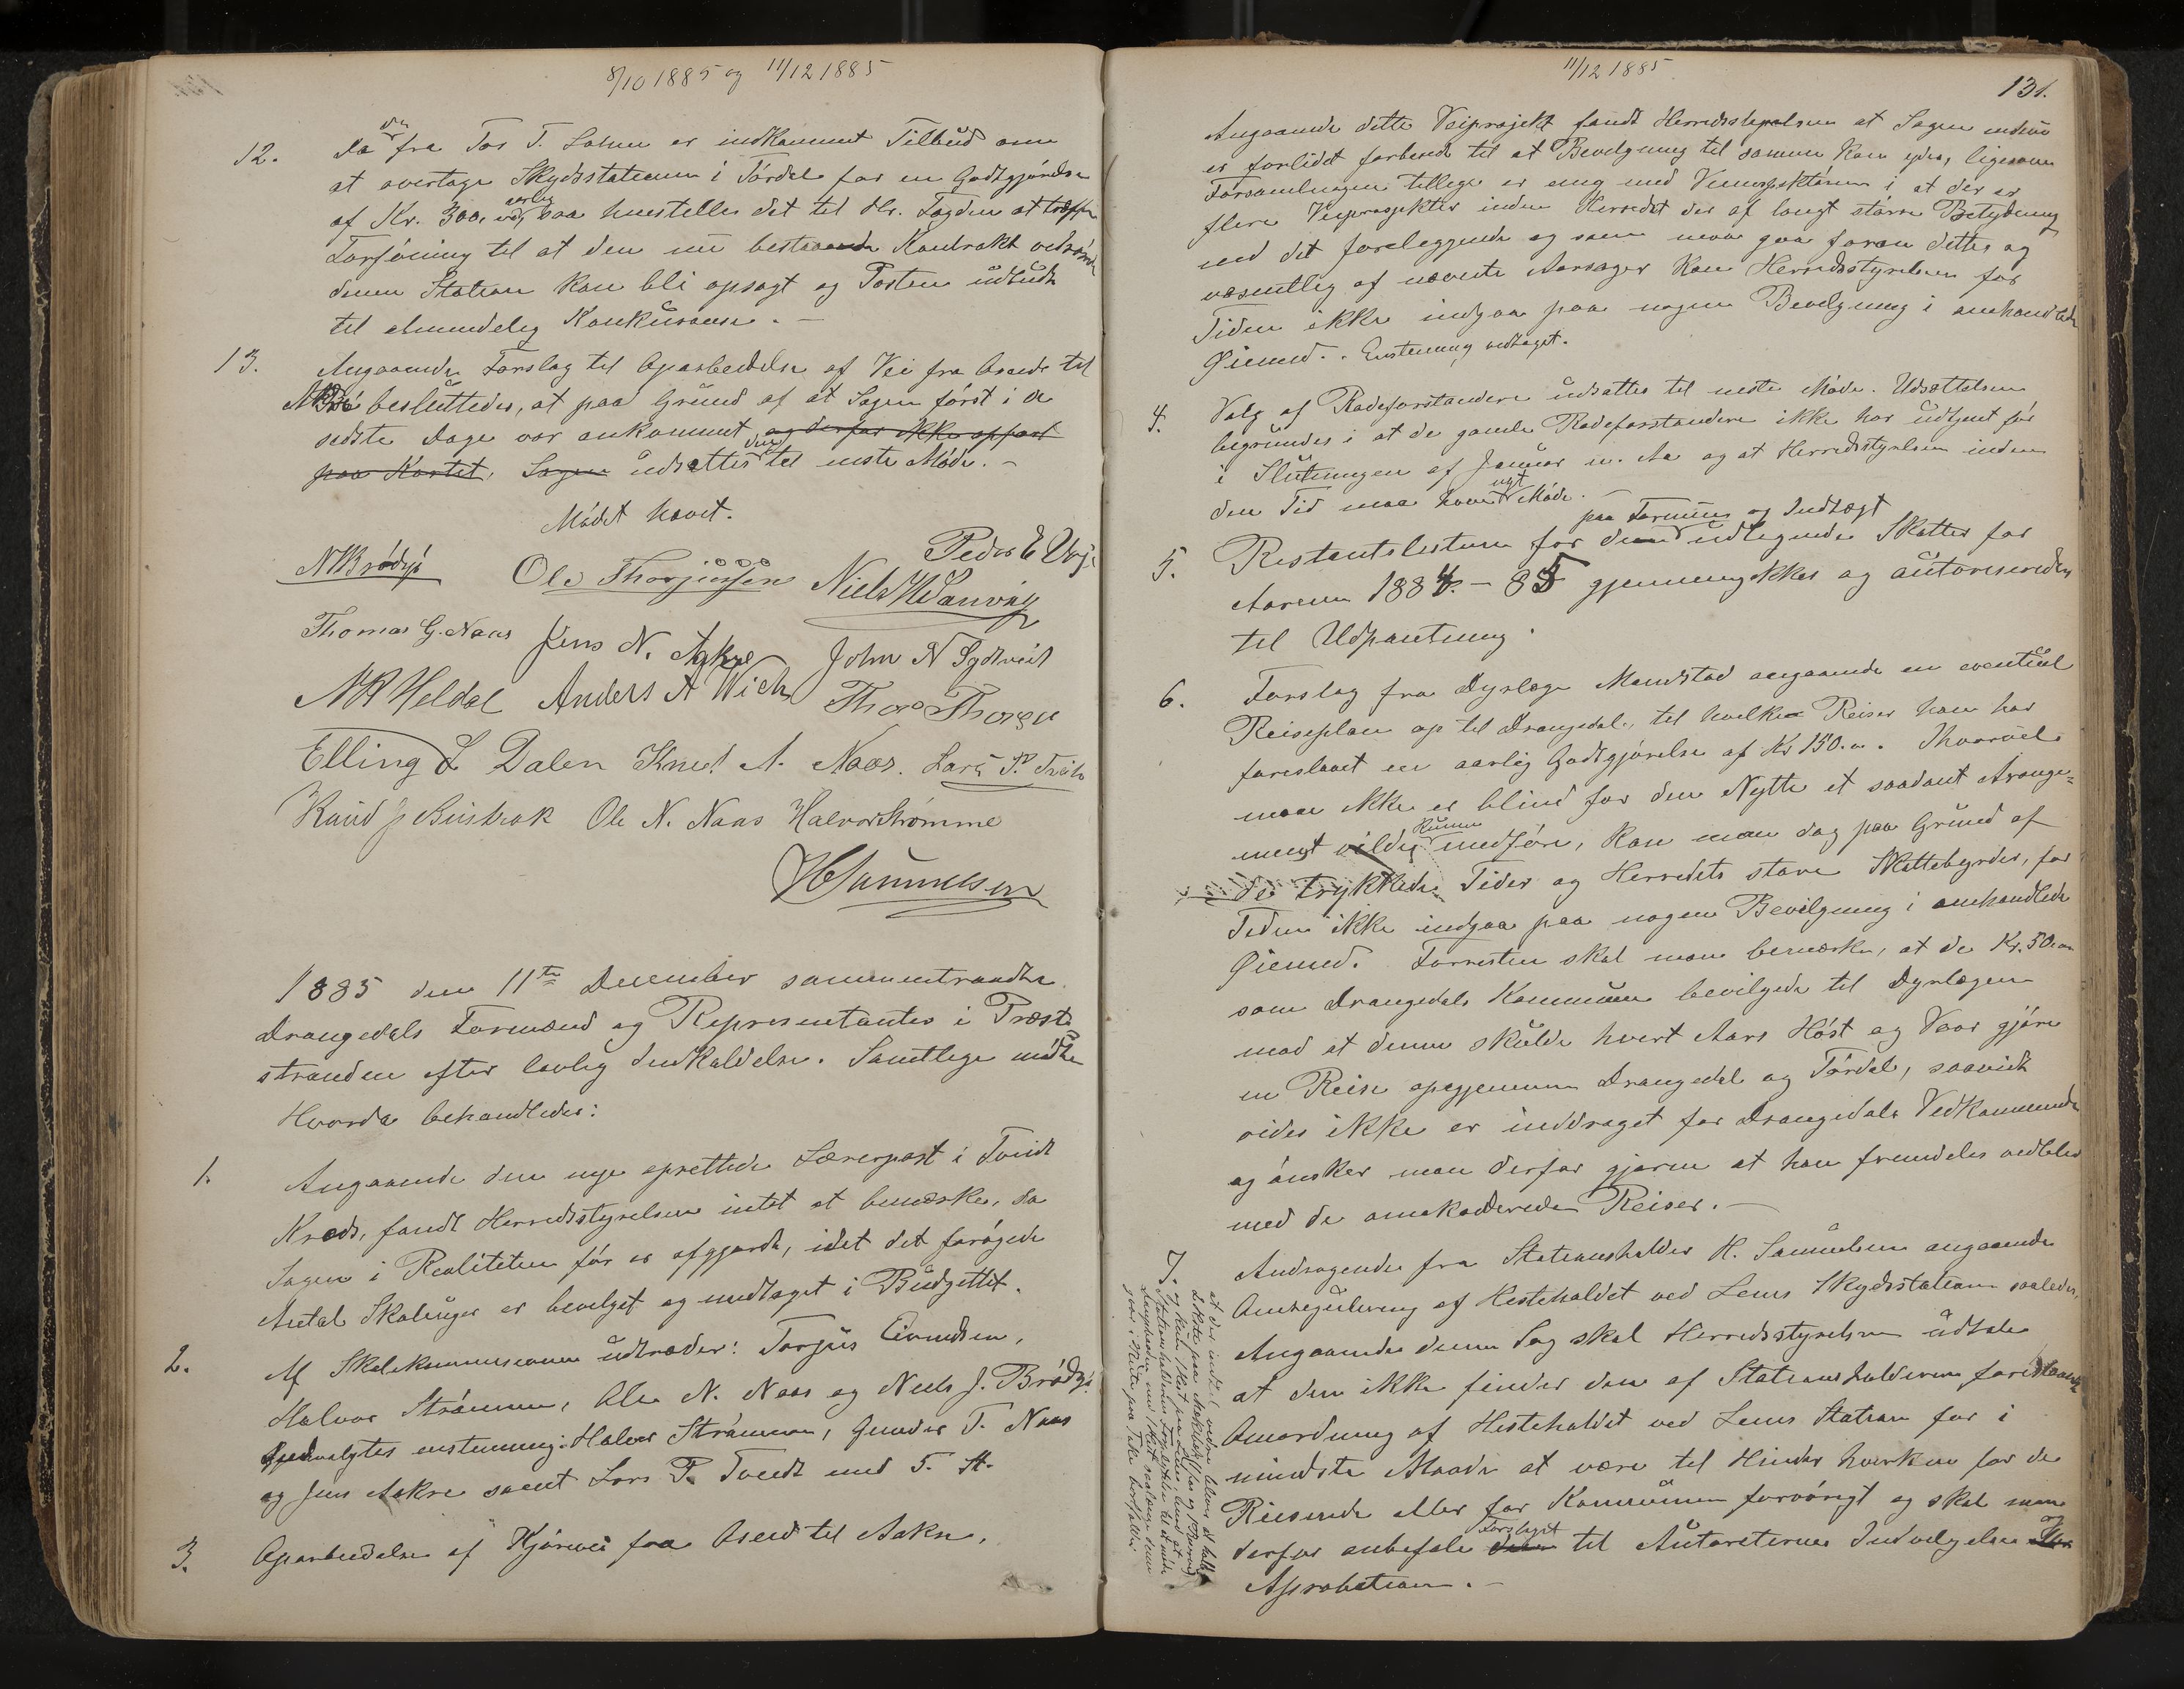 8/10 1885 og 11/12 1885
12. Da der fra Tor T. er indkommet Tilbud om
at overtage Skydsstationen i Tørdal for en Godtgjørelse
af Kr. 300, aarlig, saa henstilles det til Hr. Fogden at træffe
Forføining til at den nu bestaaende Kontrakt vedrørende
denne Station kan bli opsagt og Posten udbudt
til almindelig Konkurranse. -
13. Angaaende Forslag til Oparbeidelse af Vei fra Bsend til
Akre besluttedes, at paa Grund af at Sagen først i de
sidste Dage var ankommet og derfor ikke opført
paa Kartet, Sagen udsættes den til neste Møde. -
Mødet hævet.
N Brødsjø Ole Thorjussen Peder E
Niels H Sanvig
Thomas G. Naas Jens N. Aakre John N Sydtveit
N R Heldal Anders A Wich Thor
Elling L Dalen Knud A. Naas. Lars P. Tveit
Knud J Bushrak Ole N. Naas Halvor Strømme
H Samuelsen
1885 den 11te December sammentraadte
Drangedals Formænd og Representanter i Præst-
stranden efter lovlig Indkaldelse. Samtlige mødte
Hvorda behandledes:
1. Angaaende den nye oprettede Lærerpost i Tveidt
Kreds, fandt Herredsstyrelsen intet at bemærke, da
Sagen i Realiteten før er afgjordt, idet det forøgede
Antal Skoleuger er bevilget og medtaget i Budgettet.
2. Af Skolekommisionen udtræder: Torjus Eivindsen,
Halvor Strømme, Ole N. Naas og Neils J. Brødsjø.
Gjenvalgtes enstemmig: Halvor Strømme, Gunder T. Naas
og Jens Aakre samt Lars P. Tveidt med 5 St.
3. Oparbeidelse af Kjørevei fra Bsend til Aakre.
11/12 1885
131.
Angaaende dette Veiprojekt fandt Herredsstyrelsen at Sagen endnu
er forlidet forberedt til at Bevilgning til samme kan ydes, ligesom
Forsamlingen tillige er enig med Veiinspektøren i at der er
flere Veiprosjekter inden Herredet der af langt større Betydning
end det foreliggende og som maa gaa foran dette, og
væsentlig af nævnte Aarsager kan Herredsstyrelsen for
Tiden ikke indgaa paa nogen Bevilgning i omhandlede
Øiemed. Enstemmig vedtaget.
4. Valg af Rodeforstandere udsattes til neste Møde. Udsættelsen
begrundes i at de gamle Rodeforstandere ikke har udtjent før
i Slutningen af Januar n. Aa og at Herredsstyrelsen inden
den Tid maa have nyt Møde. -
5. Restantslisterne for den paa Formue og Indtægt udlignede Skatter for
Aarene 1884 - 85 gjennemgikkes og autoriseredes
til Udpantning.
6. Forslag fra Dyrlæge Mandstad angaaende en eventuel
Reiseplan op til Drangedal, til hvilke Reiser han har
foreslaaet en aarlig Godtgjørelse af Kr 150.00. Ihvorvel
man ikke er blind for den Nytte et saadant Arange-
ment vilde kunne medføre, kan man dog paa Grund af
de trykkede Tider og Herredets store Skattebyrder, for
Tiden ikke indgaa paa nogen Bevilgning i omhandlede
Øiemed. Forresten skal man bemærke, at de Kr. 50.00
som Drangedals Kommune bevilgede til Dyrlægen
mod at denne skulde hvert Aars Høst og Vaar gjøre
en Reise opgjennem Drangedal og Tørdal, saavidt
vides ikke er inddraget for Drangedals Vedkommende
og ønsker man derfor gjerne at han fremdeles vedbliver
med de omakorderede Reiser. -
7. Andragende fra Stationsholder H. Samuelsen angaaende
Omregulering af Hesteholdet ved Lens Skydsstation saaledes,
Angaaende denne Sag skal Herredsstyrelsen udtale
at den ikke finder den af Stationsholderen foreslaaede
Omordning af Hesteholdet ved Lens Station for i
mindste Maade at være til Hinder hverken for de
Reisende eller for Kommunen forøvrigt og skal man
derfor anbefale Forslaget til Autoriteternes Indvilgelse og
Approbation. -